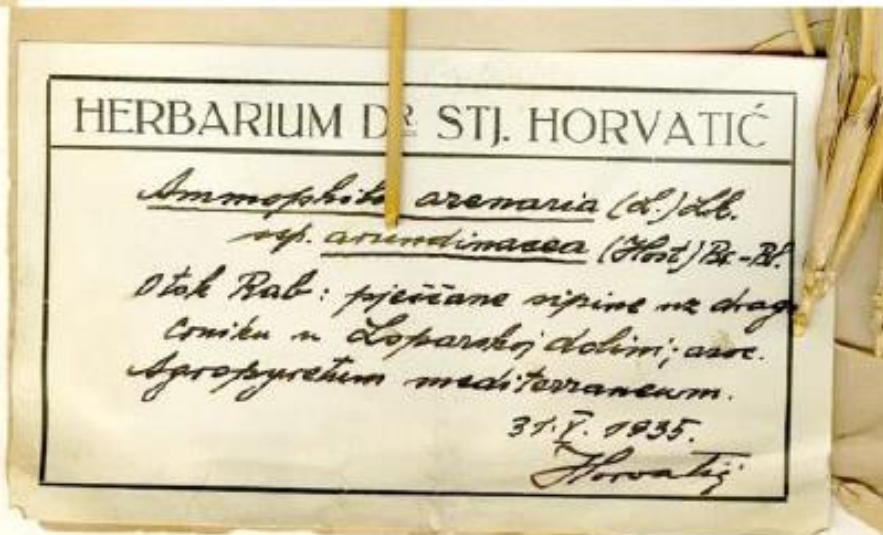 HERBARIUM DR. STJ. HORVATIĆ
Ammophila arenaria (L.) Lk.
ssp. arundinacea (Host) Br.-Bl.
Otok Rab: pješčane sipine uz
u Loparskoj dolini; asoc.
Agropyretum mediterraneum.
31. V. 1935.
Horvatić